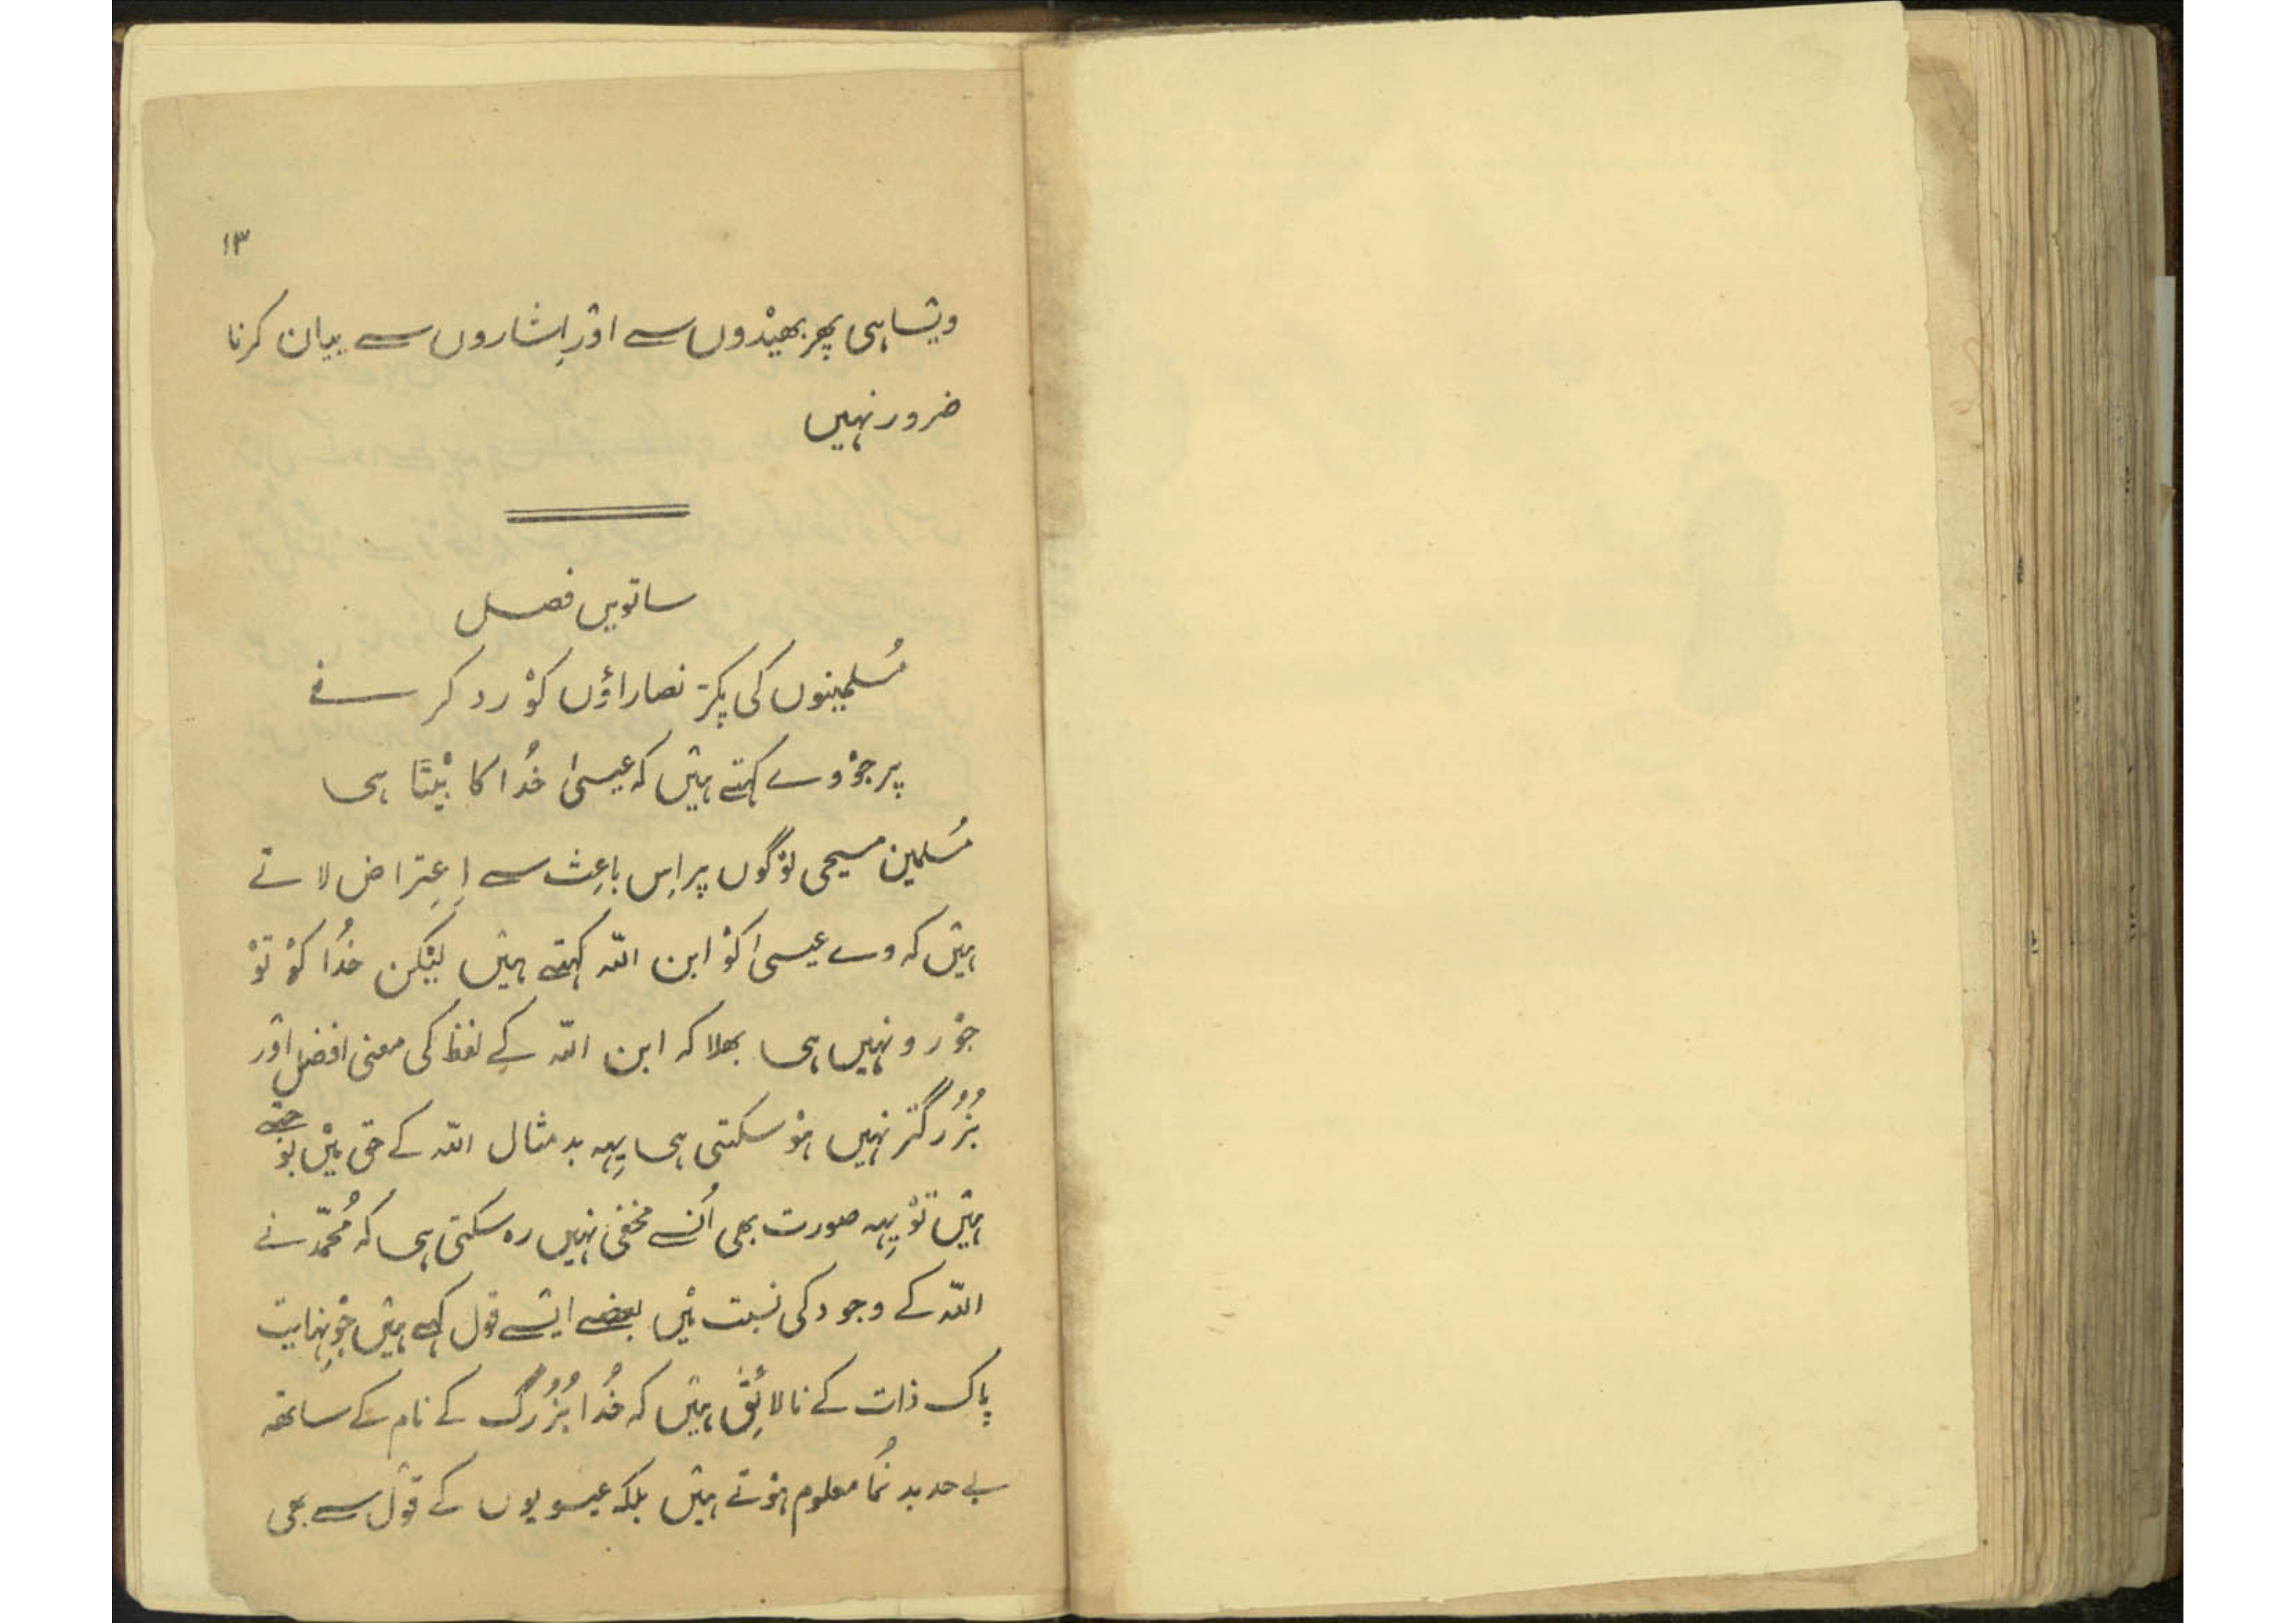 ۱۳
ویسا ہی پھر بھیدوں سے اور اِشاروں سے بیان کرنا
ضرور نہیں
ساتویں فصل
مُسلمینوں کی پکڑ نصاراؤں کوْ رد کرنے
پر جوْ وے کہتے ہیں کہ عیسیٰ خُدا کا بیٹا ہی
مُسلمین مسیحی لوْگوں پر اِس باعِث سے اِعِتراض لاتے
ہیں کہ وے عیسیٰ کوْ ابن اللّہ کہتے ہیں لیکن خُدا کوْ توْ
جوْرو نہیں ہی بھلا کہ ابن اللّہ کے لفظ کی معنی افضل اور
بُزُرگتر نہیں ہوْ سکتی ہی یِہہ بد مثال اللّہ کے حق میں بوْجھتے
ہیں توْ یِہہ صورت بھی اُنسے مخفی نہیں رہ سکتی ہی کہ مُحمّد نے
اللّہ کے وجود کی نسبت میں بعضے ایسے قول کہے ہیں جوْ نِہایت
پاک ذات کے نالائِق ہیں کہ خُدا بُزُرگ کے نام کے ساتھہ
بے حد بد نُما معلوم ہوْتے ہیں بلکہ عیسویوں کے قول سے بھی